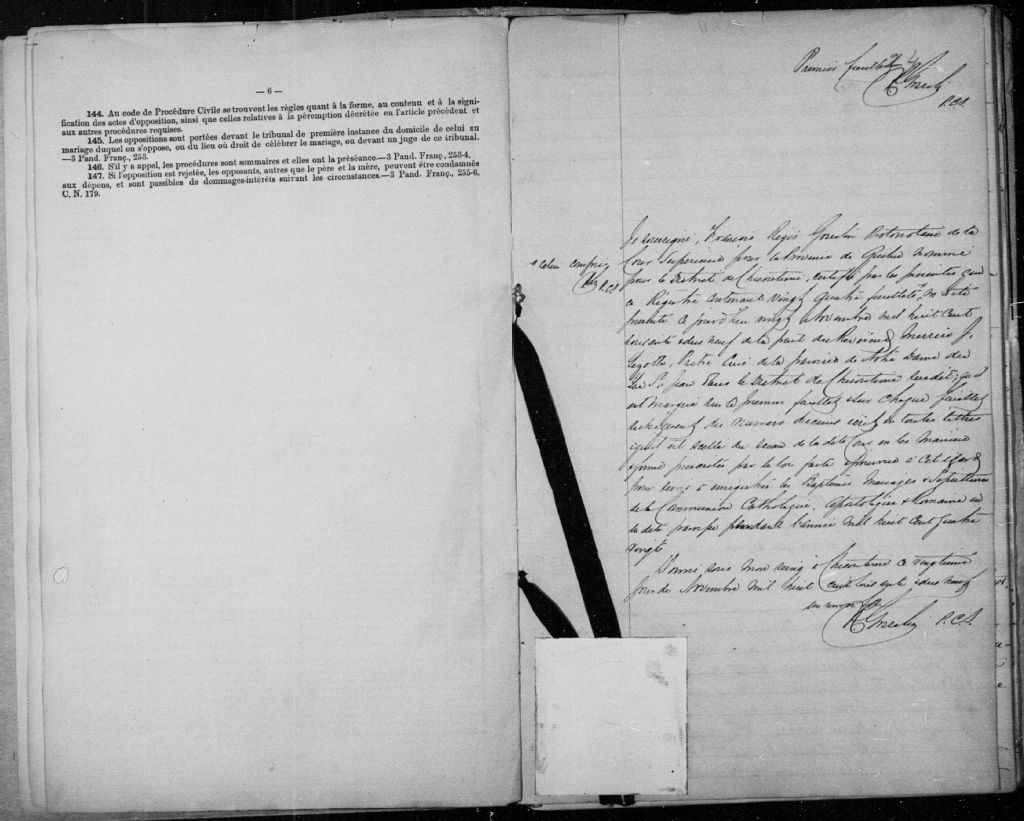 — 6 —
144. Au code de Procédure Civile se trouvent les règles quant à la forme, au contenu et à la signi-
fication des actes d'opposition, ainsi que celles relatives à la péremption décrétée en l'article précédent et
aux autres procédures requises.
145. Les oppositions sont portées devant le tribunal de première instance du domicile de celui au
mariage duquel on s'oppose, ou du lieu où droit de célébrer le mariage, ou devant un juge de ce tribunal.
—3 Pand. Franç., 253.
146. S'il y a appel, les procédures sont sommaires et elles ont la préséance.—3 Pand. Franç., 253-4.
147. Si l'opposition est rejetée, les opposants, autres que le père et la mère, peuvent être condamnés
aux dépens, et sont passibles de dommages-intérêts suivant les circonstances.—3 Pand. Franç., 255-6.
C. N. 179.
Premier feuillet
P.C.S.
Je soussigné, François Régis Gosselin Protonotaire de la
Cour Supérieure pour la Province de Québec nommé
pour le District de Chicoutimi, certifie par les présentes que
ce Régistre contenant vingt quatre feuillets, m'a été
présenté ce jourd'hui vingt Novembre mil huit cent
soixante & dix neuf de la part du Révérend Messire J.
Prêtre Curé de la paroisse de Notre Dame du
Lac St. Jean dans le District de Chicoutimi susdit; qu'il
est marqué sur ce premier feuillet & sur chaque feuillet
subséquent du numéro d'icelui écrit en toutes lettres
& qu'il est scellé du sceau de la dite Cour en la Manière
& forme prescrites par la loi faite & pourvue à cet égard
pour servir à enregistrer les Baptêmes Mariages & Sépultures
de la Communion Catholique, Apostolique & Romaine en
la dite paroisse pendant l'année mil huit cent quatre
vingt
Donné sous mon seing à Chicoutimi ce vingtième
jour de Novembre mil huit cent soixante & dix neuf
P.C.S.
* celui compris
P.C.S.